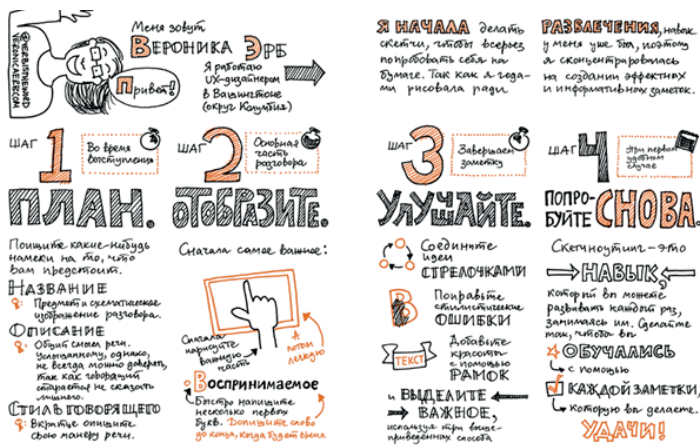 @VERBISTHEWORD
VERONICAERB.COM
Меня зовут
ВЕРОНИКА ЭРБ
Привет!
Я работаю
UX-дизайнером
в Вашингтоне
(округ Колумбия)
Я НАЧАЛА делать
скетчи, чтобы всерьез
попробовать себя на
бумаге. Так как я года-
ми рисовала ради
РАЗВЛЕЧЕНИЯ, навык
у меня уже был, поэтому
я сконцентрировалась
на создании эффектных
и информативных заметок.
ШАГ 1
Во время
выступления
ПЛАН.
Поищите какие-нибудь
намеки на то, что
вам предстоит.
НАЗВАНИЕ
Предмет и схематическое
изображение разговора.
ОПИСАНИЕ
Общий смысл речи.
Услышанному, однако,
не всегда можно доверять,
так как говорящий
старается не сказать
лишнего.
СТИЛЬ ГОВОРЯЩЕГО
Вкратце опишите
свою манеру речи.
ШАГ 2
Основная
часть
разговора
ОТОБРАЗИТЕ.
Сначала самое важное:
Сначала
нарисуйте
важную
часть
А
потом
легкую
Воспринимаемое
Быстро напишите
несколько первых
букв. Допишите слово
до конца, когда будет время
ШАГ 3
Завершаем
заметку
УЛУЧШАЙТЕ.
Соедините
идеи
СТРЕЛОЧКАМИ
В
Поправьте
стилистические
ОШИБКИ
ТЕКСТ
Добавьте
красоты
с помощью
РАМОК
и ВЫДЕЛИТЕ
ВАЖНОЕ,
используя три выше-
приведенных способа
ШАГ 4
При первом
удобном
случае
ПОПРО-
БУЙТЕ СНОВА.
Скетчноутинг – это
НАВЫК,
который вы можете
развивать каждый раз,
занимаясь им. Сделайте
так, чтобы вы
ОБУЧАЛИСЬ
с помощью
КАЖДОЙ ЗАМЕТКИ,
которую вы делаете.
УДАЧИ!